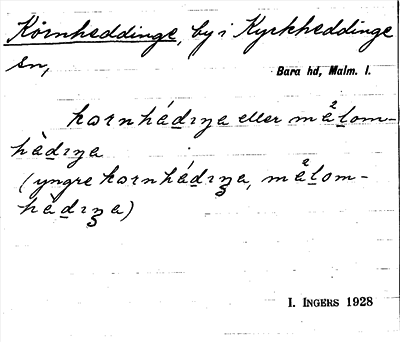 Körnheddinge, by i Kyrkheddinge
sn,
Bara hd, Malm. l.
kornhádıŋa eller målom-
hàdıŋa
(yngre kornhádıŋa, målom-
hàdıŋa)
I. INGERS 1928